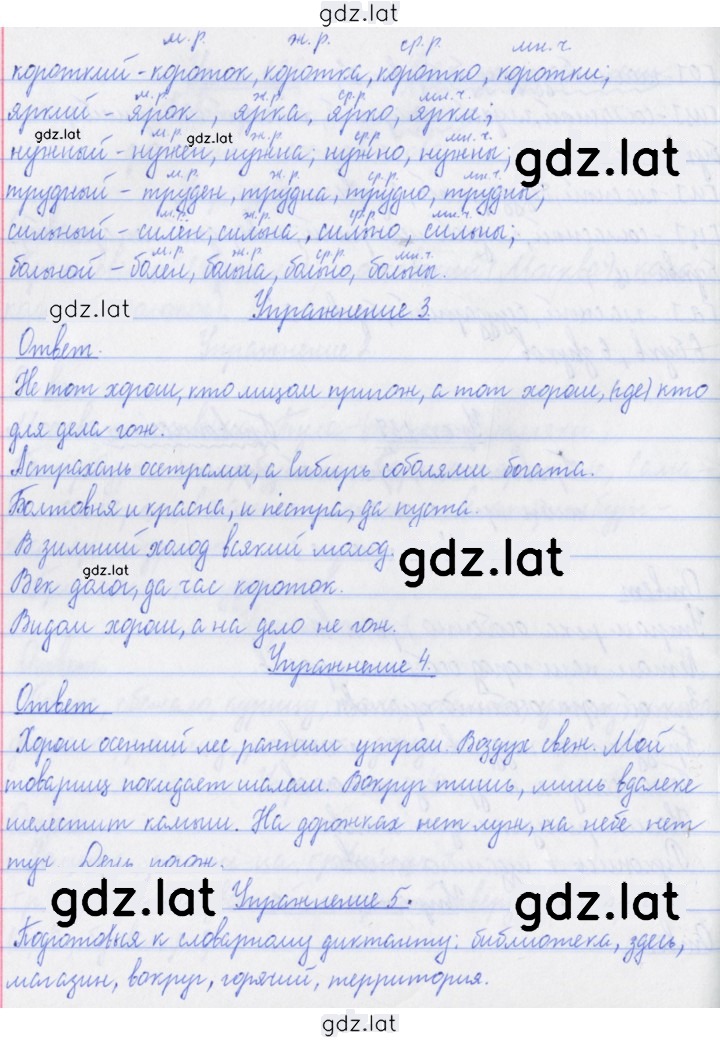 gdz.lat
м.р. ж.р. ср.р. мн.ч.
короткий – короток, коротка, коротко, коротки;
м.р. ж.р. ср.р. мн.ч.
яркий – ярок, ярка, ярко, ярки;
gdz.lat м.р. gdz.lat ж.р. ср.р. мн.ч.
нужный – нужен, нужна, нужно, нужны;
gdz.lat
м.р. ж.р. ср.р. мн.ч.
трудный – труден, трудна, трудно, трудны;
м.р. ж.р. ср.р. мн.ч.
сильный – силён, сильна, сильно, сильны;
м.р. ж.р. ср.р. мн.ч.
больной – болен, больна, больно, больны.
gdz.lat
Упражнение 3.
Ответ.
Не тот хорош, кто лицом пригож, а тот хорош, (где) кто
для дела гож.
Астрахань осетрами, а Сибирь соболями богата.
Болтовня и красна, и пестра, да пуста.
В зимний холод всякий молод.
gdz.lat
gdz.lat
Век долог, да час короток.
Видом хорош, а на дело не гож.
Упражнение 4.
Ответ
Хорош осенний лес ранним утром. Воздух свеж. Мой
товарищ покидает шалаш. Вокруг тишь, лишь вдалеке
шелестит камыш. На дорожках нет луж, на небе нет
туч. День погож.
gdz.lat
Упражнение 5.
gdz.lat
Подготовься к словарному диктанту: библиотека, здесь,
магазин, вокруг, горячий, территория.
gdz.lat